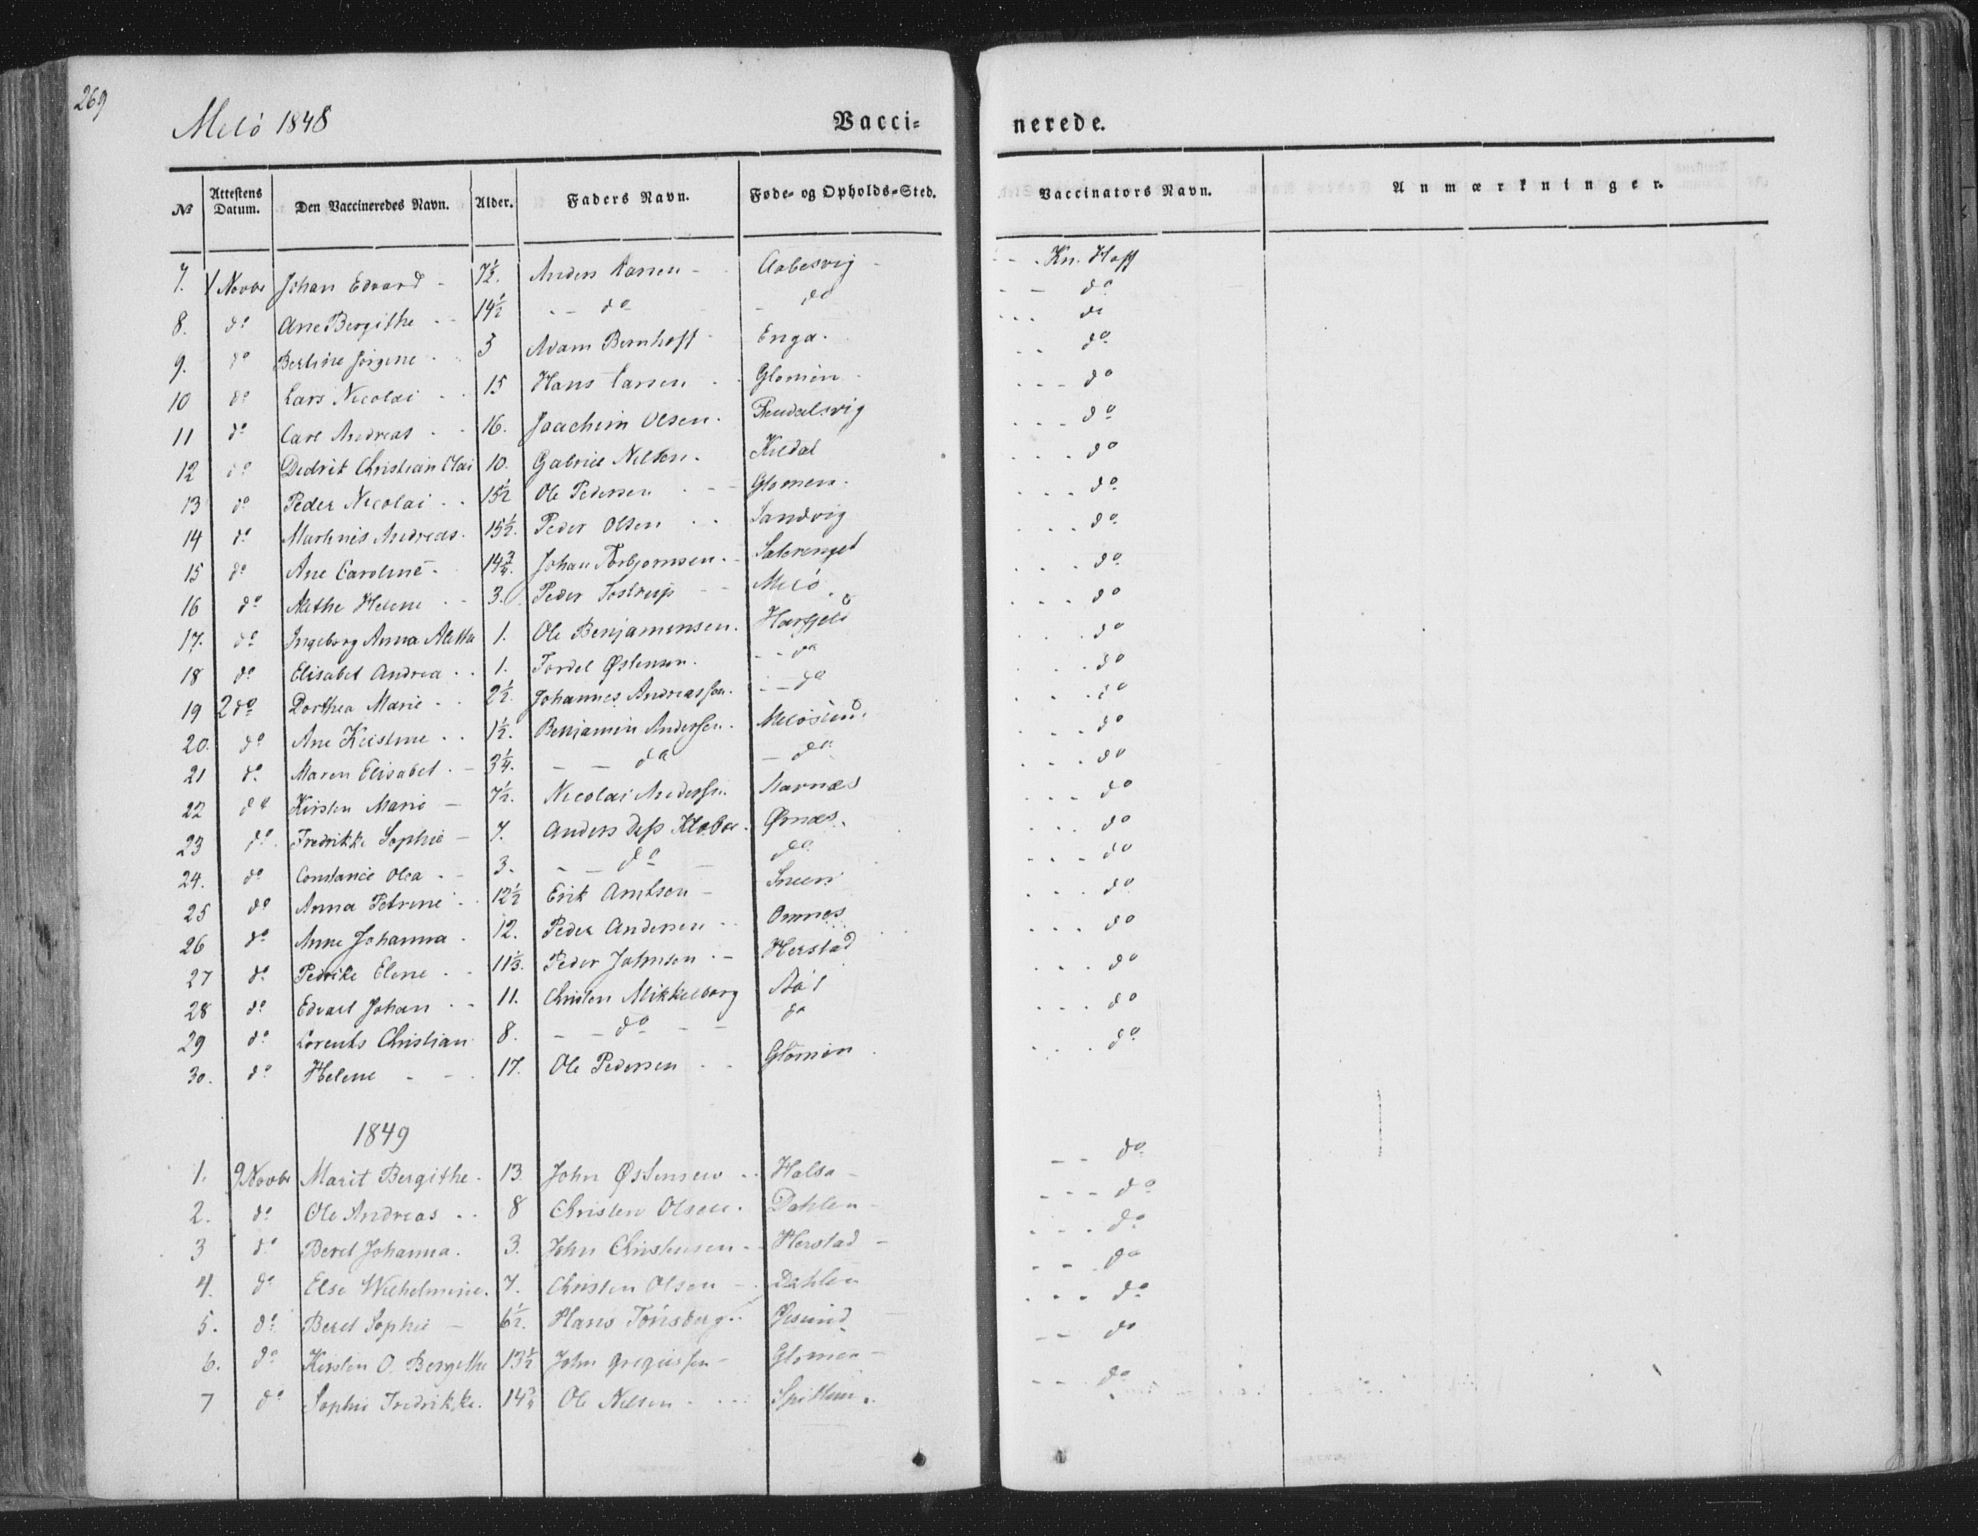 269
Melø 1848
Vacci- nerede.
No Attestens Datum. Den Vaccineredes Navn. Alder. Faders Navn. Føde- og Opholds-Sted. Vaccinators Navn. Anmærkninger.
7. 1 Novbr Johan Edvard - 7½. Anders Larsen - Aabesvig - - - . Kn. Hoff
8. do Ane Bergithe - - 14½ - - do - do - - do
9. do Berline Jørgine - 3 Adam Bernhoff - Enga. . . . do
10 do Lars Nicolai - - 15 Hans Larsen - - Glomen - - - do
11 do Carl Andreas - - 16. Joachim Olsen. Reudalsvig - - - do
12 do Didrik Christian Olai 10. Gabriel Nilsen. Kildal . . . do
13 do Peder Nicolai . . 15½ Ole Pedersen - - Glomen. . . . do
14 do Martinus Andreas. 15½. Peder Olsen . . Sandvig . . . do
15 do Ane Caroline - 14¾. Johan Torbjørnsen. - . . . do
16 do Alethe Helene - - 3. Peder Tostrup - - Melø . . . do
17. do Ingeborg Anna Aletta 1. Ole Benjaminsen. . . . do
18 do Elisabet Andrea . . 1. Tordel Østensen. - - do . . . do
19 2 do Dorthea Marie - - 2½. Johannes Andreassen. - - do . . . do
20. do Ane Kristine . . 1½. Benjamin Anderssen. Meløsund. . . . do
21 do Maren Elisabet. - 3¼. - - do - do . . . do
22 do Kirsten Marie - 7½. Nicolai Anderssen. . . . do
23 do. Fredrikke Sophie - 7. Anders Dass Kløboe. Ørnæs. . . . do
24. do Constance Olea . - 3. - - do - do . . . do
25 do Anna Petrine . . 12½ Erik Arntsen - . . . do
26 do Anne Johanna . 12. Peder Andersen . . Ornnes . . . do
27 do Pedrike Elene . . 11⅓. Peder Johnsen . - Herstad . . . do
28 do Edvart Johan . . 11. Christen Mikkelborg . . . do
29 do Lorents Christian 8. - - do - - do . . . do
30. do Helene - - . 17. Ole Pedersen . . Glomen . . . . do
1849
1. 9 Novbr Marit Bergithe. 13. John Østensen - . Halsa - - - do
2. do Ole Andreas . . 8 Christen Olsen. Dahlen - - - - do
3 do Beret Johanna. 3. John Christensen - . Herstad - . . . do
4. do Else Wilhelmine. 7. Christen Olsen - . Dahlen - - . do
5. do Beret Sophie - 6½. Hans Tønsberg. . . . . do
6. do Kirsten O. Bergithe 13½ John Gregerssen - Glomen - - - do
7 do Sophie Fredrikke. 14¾ Ole Nilsen . . . . - - - do